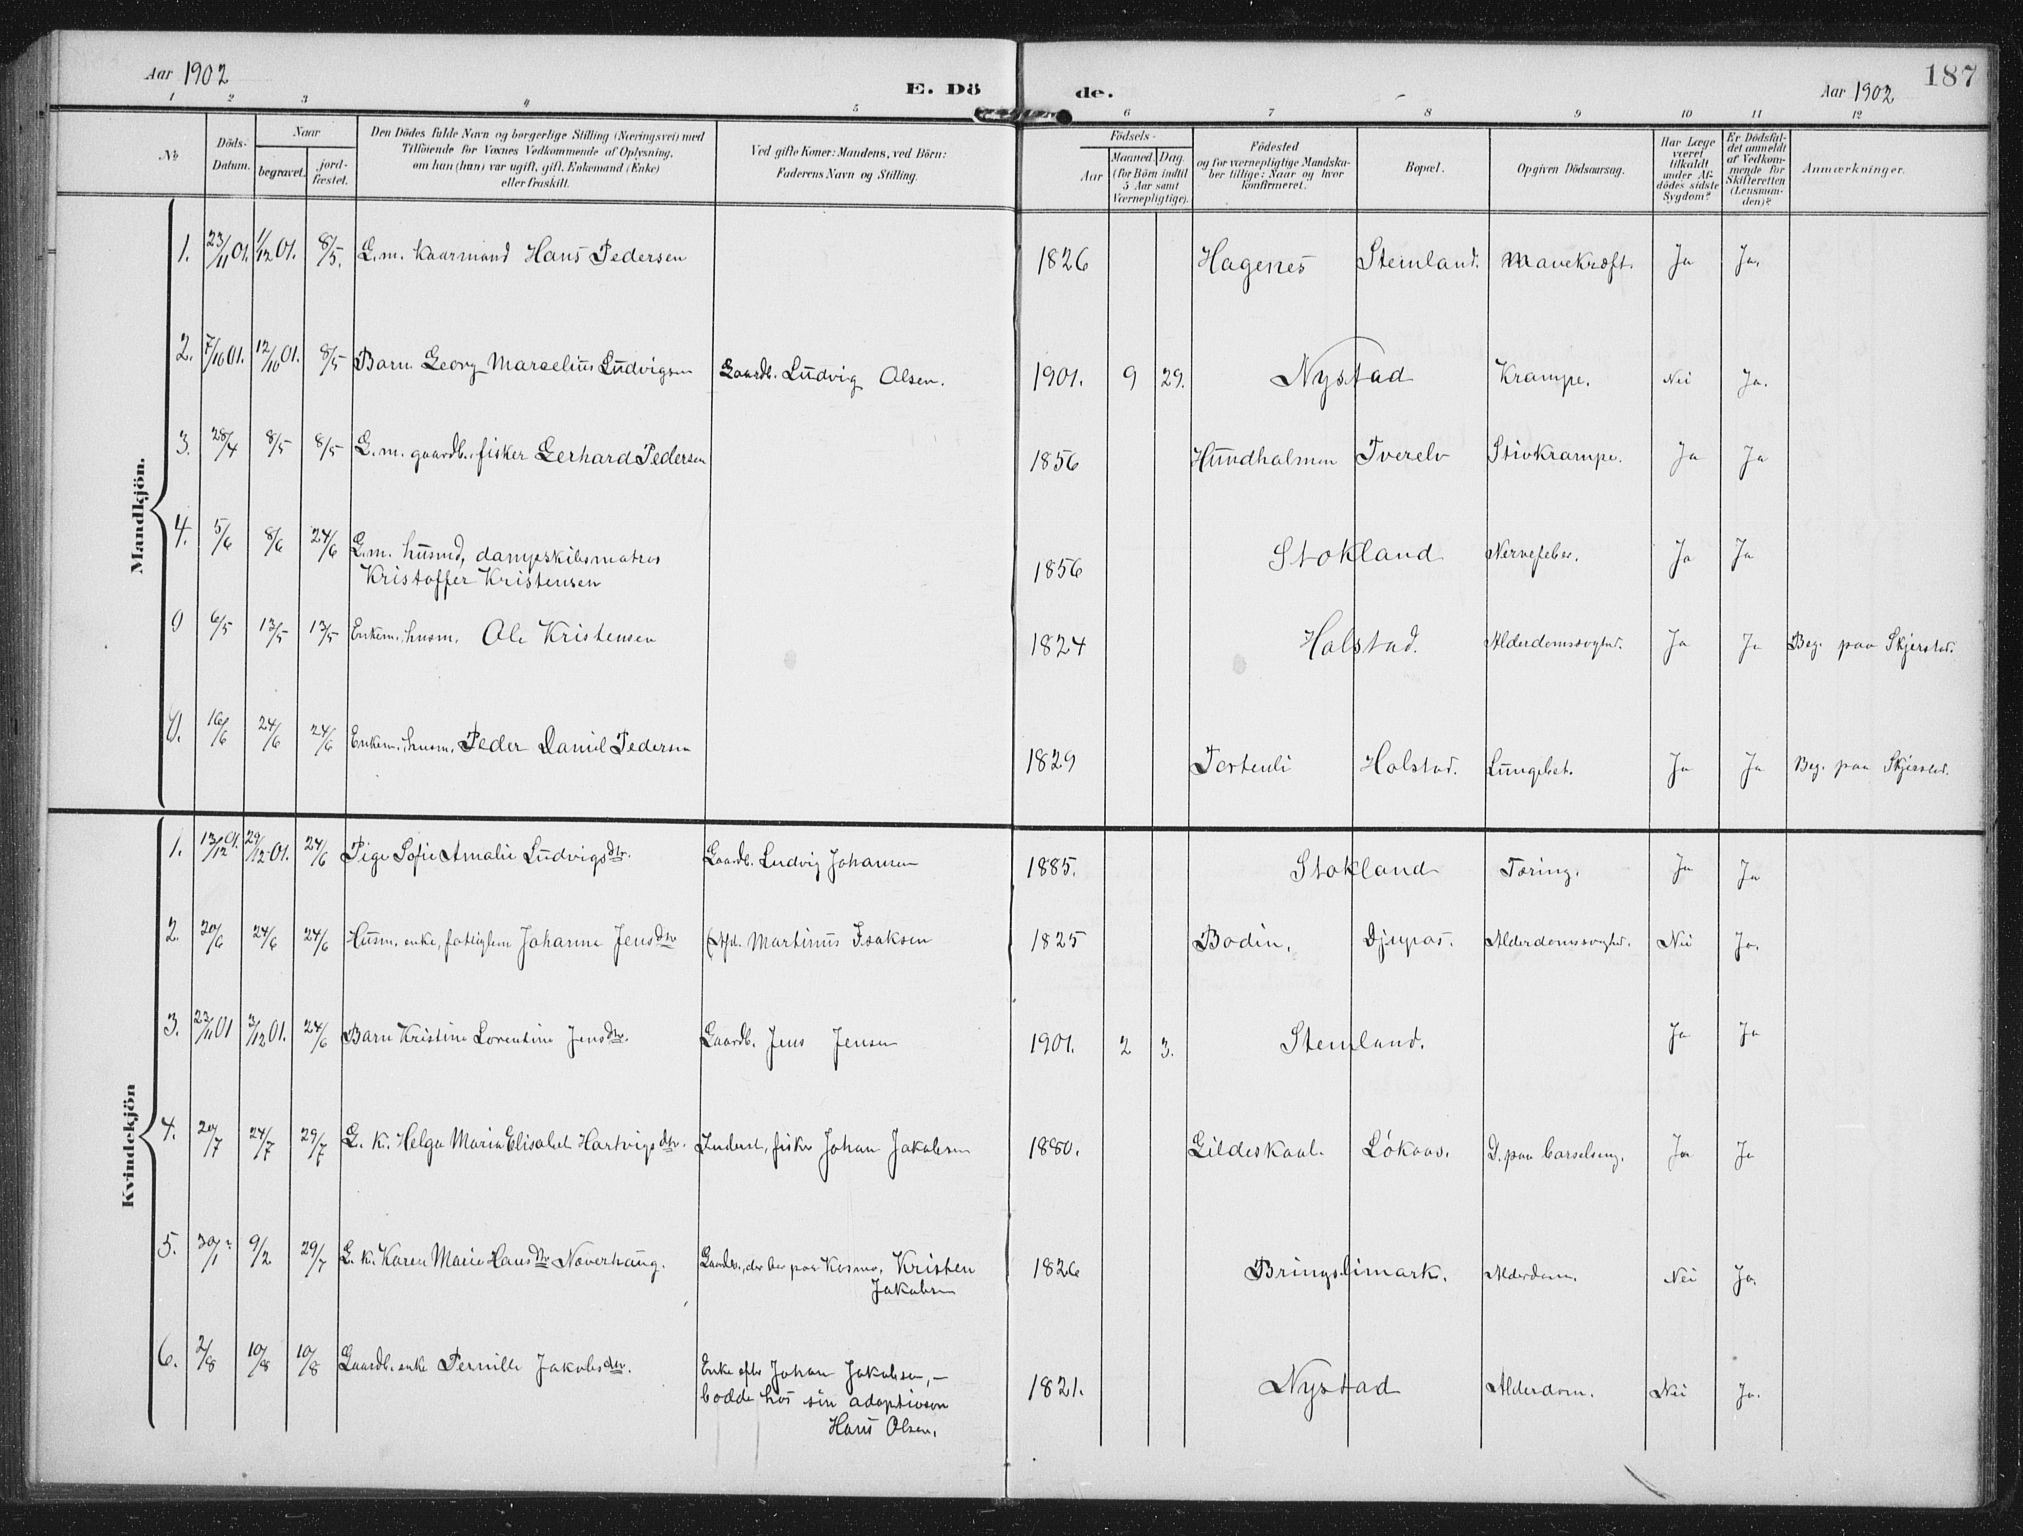 Aar 1902
E. Dö de.
Aar 1902
187
1 2 3 4 5 6 7 8 9 10 11 12
No
Döds-Datum.
Naar
begravet.
jord-fæstet.
Den Dödes fulde Navn og borgerlige Stilling (Næringsvei) med
Tilföiende for Voxnes Vedkommende af Oplysning,
om han (hun) var ugift, gift, Enkemand (Enke)
eller fraskilt.
Ved gifte Koner: Mandens, ved Börn:
Faderens Navn og Stilling.
Födsels-
Aar
Maaned. Dag.
(for Börn indtil
5 Aar samt
Værnepligtige).
Födested
og for værnepligtige Mandska-
ber tillige: Naar og hvor
konfirmeret.
Bopæl.
Opgiven Dödsaarsag.
Har Læge
været
tilkaldt
under Af-
dödes sidste
Sygdom?
Er Dödsfal-
det anmeldt
af Vedkom-
mende for
Skifteretten
(Lensman-
den)?
Anmærkninger.
Mandkjön.
1. 23/11 01. 1/12 01. 8/5. G.m. kaarmand Hans Pedersen 1826 Hagenes Stemland. Mavekræft. Ja Ja.
2. 7/10 01. 12/10 01. 8/5 Barn Georg Marselius Ludvigsen Gaardb. Ludvig Olsen. 1901. 9 29. Nystad Krampe. Nei Ja.
3. 28/4 8/5 8/5 G.m. gaardb., fisker Gerhard Pedersen 1856 Hundholmen Tverelv Stivkrampe. Ja Ja
4. 5/6 8/6 24/6 G.m. husmd, dampskibsmatros
Kristoffer Kristensen 1856 Stokland Nervefeber. Ja Ja
0 6/5 13/5 13/5 Enkem., husm. Ole Kristensen 1824 Halstad. Alderdomssvaghed. Ja Ja Beg. paa Skjerstad.
0. 16/6 24/6 24/6 Enkem., husm. Peder Daniel Pedersen 1829 Tortenli Halstad. Lungebet. Ja Ja Beg. paa Skjerstad.
Kvindekjön
1. 13/12 01. 29/12 01. 24/6 Pige Sofie Amalie Ludvigsdtr. Gaardb. Ludvig Johansen 1885. Stokland Tæring. Ja Ja
2. 20/6 24/6 24/6 Husm. enke, fattiglem Johanna Jensdtr Martinus Isaksen 1825 Bodin. Djupos. Alderdomssvaghed. Nei Ja.
3. 23/11 01 3/12 01. 24/6 Barn Kristine Lorentine Jensdtr. Gaardb. Jens Jensen 1901. 2 3. Stemland. Ja Ja
4. 20/7 24/7 29/7 G. k. Helga Maria Elisabet Hartvigsdtr. Inderst, fisker Johan Jakobsen 1880. Gildeskaal. Lökaas. D. paa barselseng. Ja Ja
5. 30/1 9/2 29/7 G. k. Karen Marie Hansdtr Næverhaug. Gaardb., der bor paa Kosmo, Kristen
Jakobsen 1826 Bringslimark. Alderdom. Nei Ja.
6. 2/8 10/8 10/8 Gaardb. enke Pernille Jakobsdtr. Enke efter Johan Jakobsen, –
bodde hos sin adoptivsøn
Hans Olsen. 1821. Nystad Alderdom. Nei Ja.